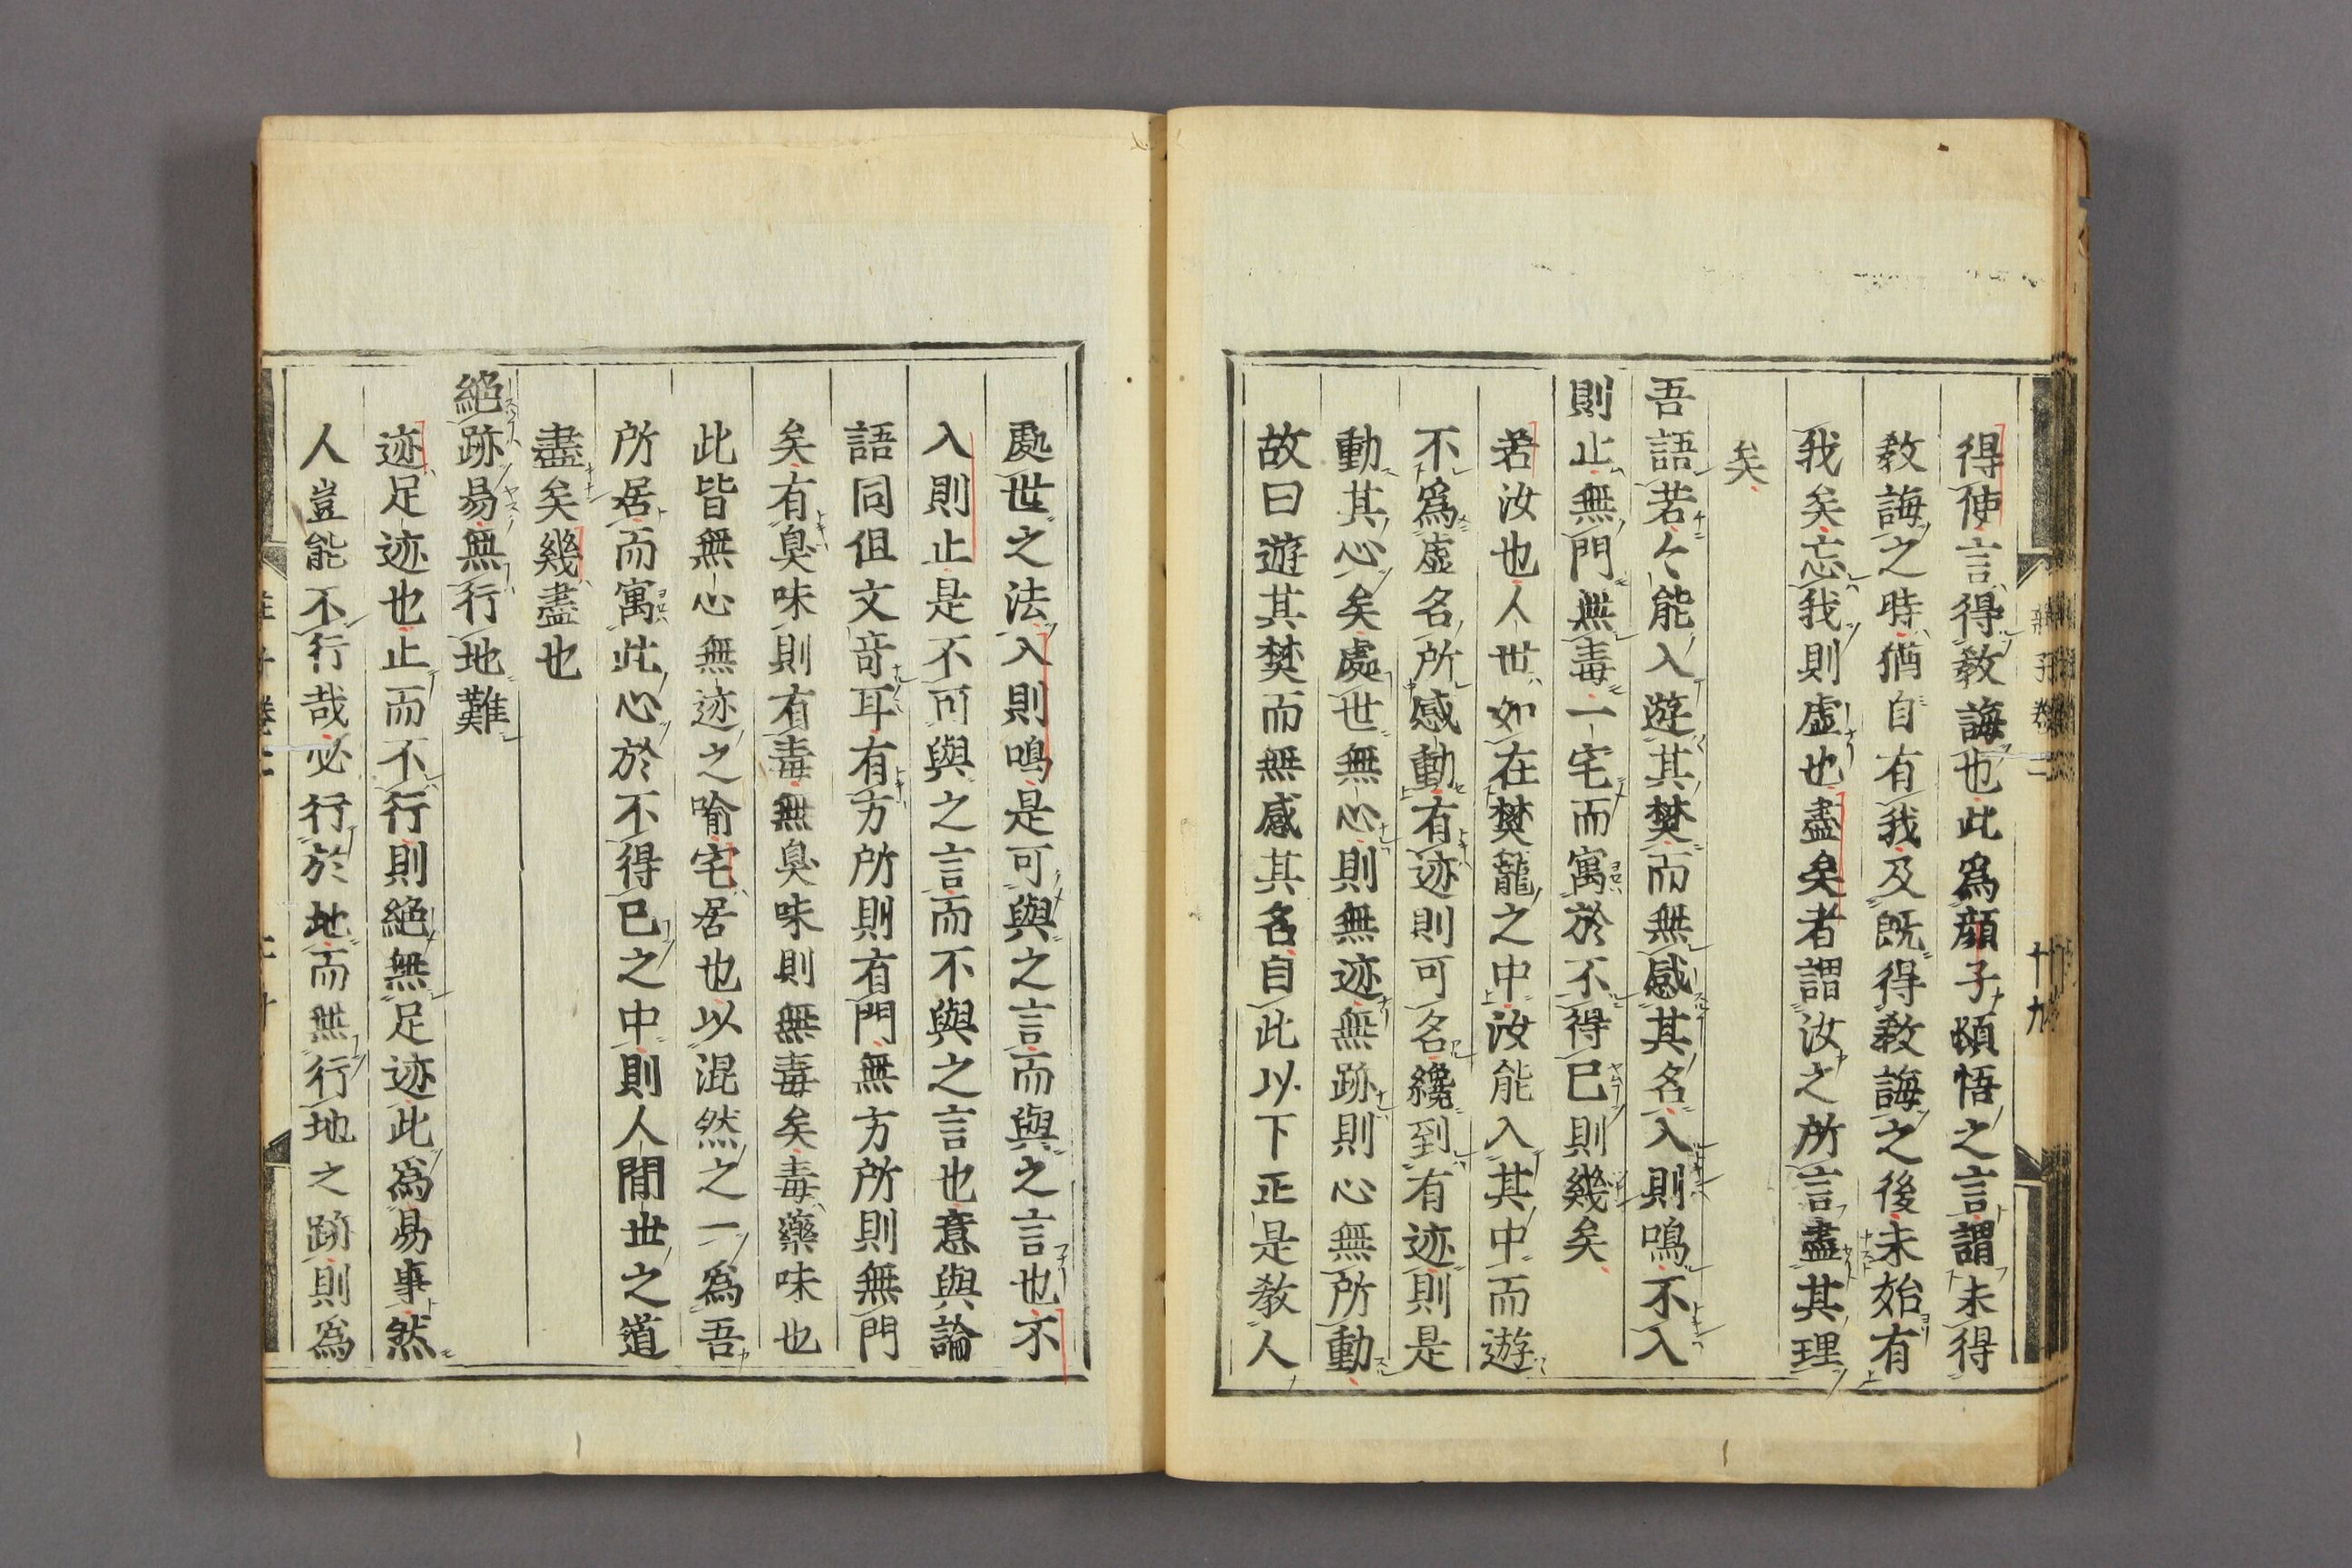 得使言得教誨也此爲顔子頓悟之言謂未得
教誨之時猶自有我及既得教誨之後未始有
我矣忘我則虚也盡矣者謂汝之所言盡其理
矣
吾語若々能入遊其樊而無感其名入則鳴不入
則止無門無毒一宅而寓於不得已則幾矣
若汝也人世如在樊籠之中汝能入其中而遊
不爲虚名所感動有迹則可名纔到有迹則是
動其心矣處世無心則無迹無跡則心無所動
故曰遊其樊而無感其名自此以下正是教人
處世之法入則鳴是可與之言而與之言也不
入則止是不可與之言而不與之言也意與論
語同但文竒耳有方所則有門無方所則無門
矣有臭味則有毒無臭味則無毒矣毒藥味也
此皆無心無迹之喻宅居也以混然之一爲吾
所居而寓此心於不得已之中則人間世之道
盡矣幾盡也
絕跡易無行地難
迹足迹也止而不行則絕無足迹此爲易事然
人豈能不行哉必行於地而無行地之跡則爲
十九